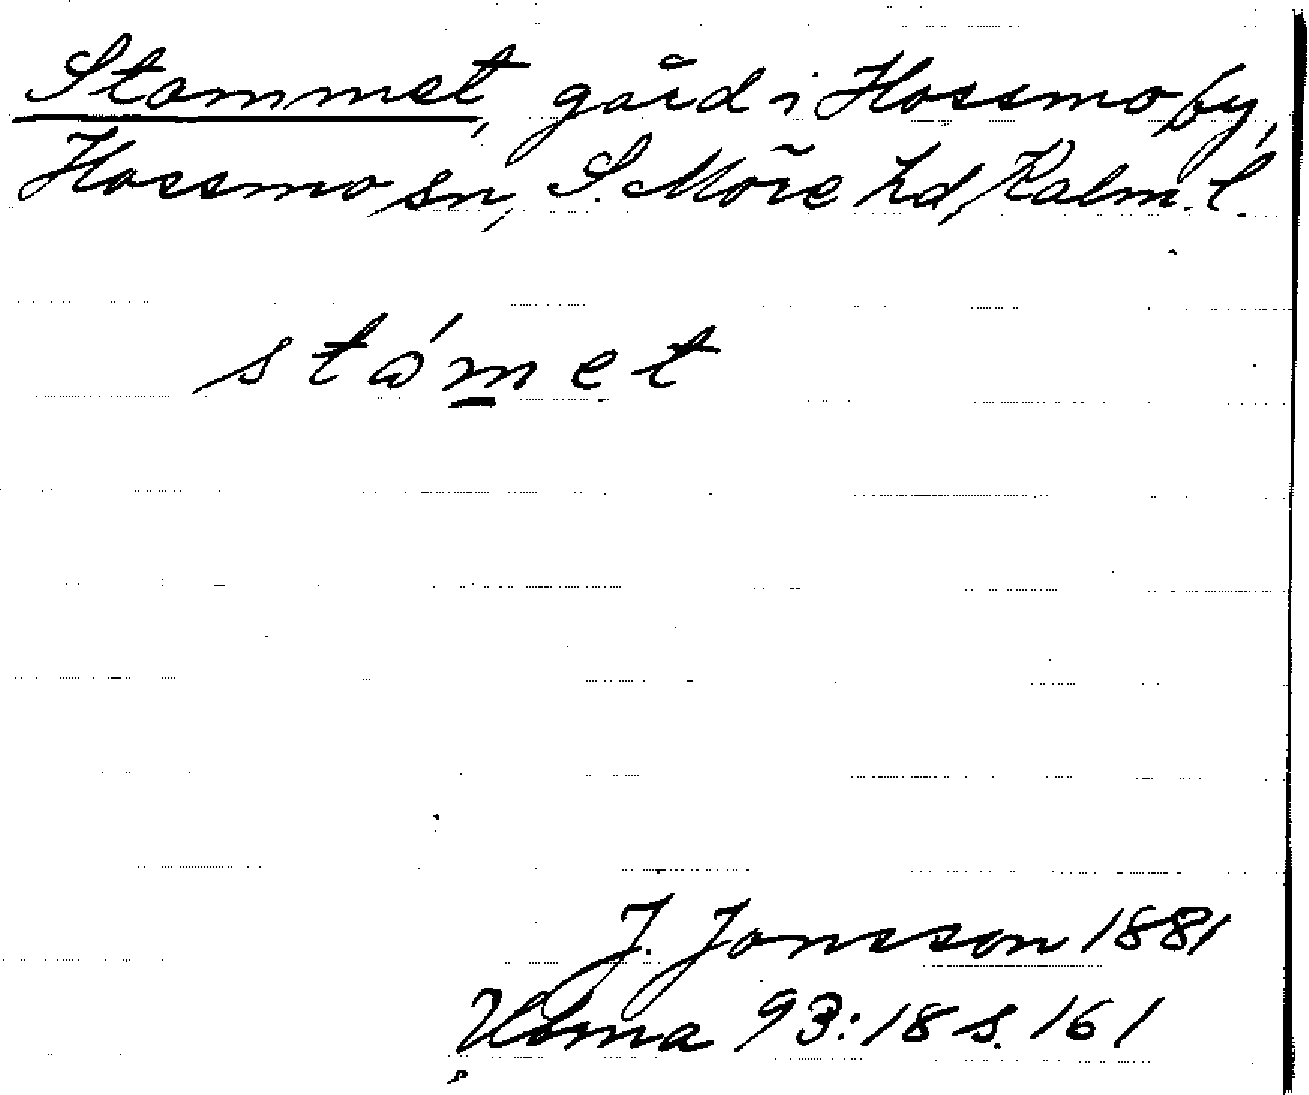 Stammet, gård i Hossmo by,
Hossmo sn, S. Möre hd, Kalm. l.
stámet
J. Jonsson 1881
Uoma 93:18 s. 161